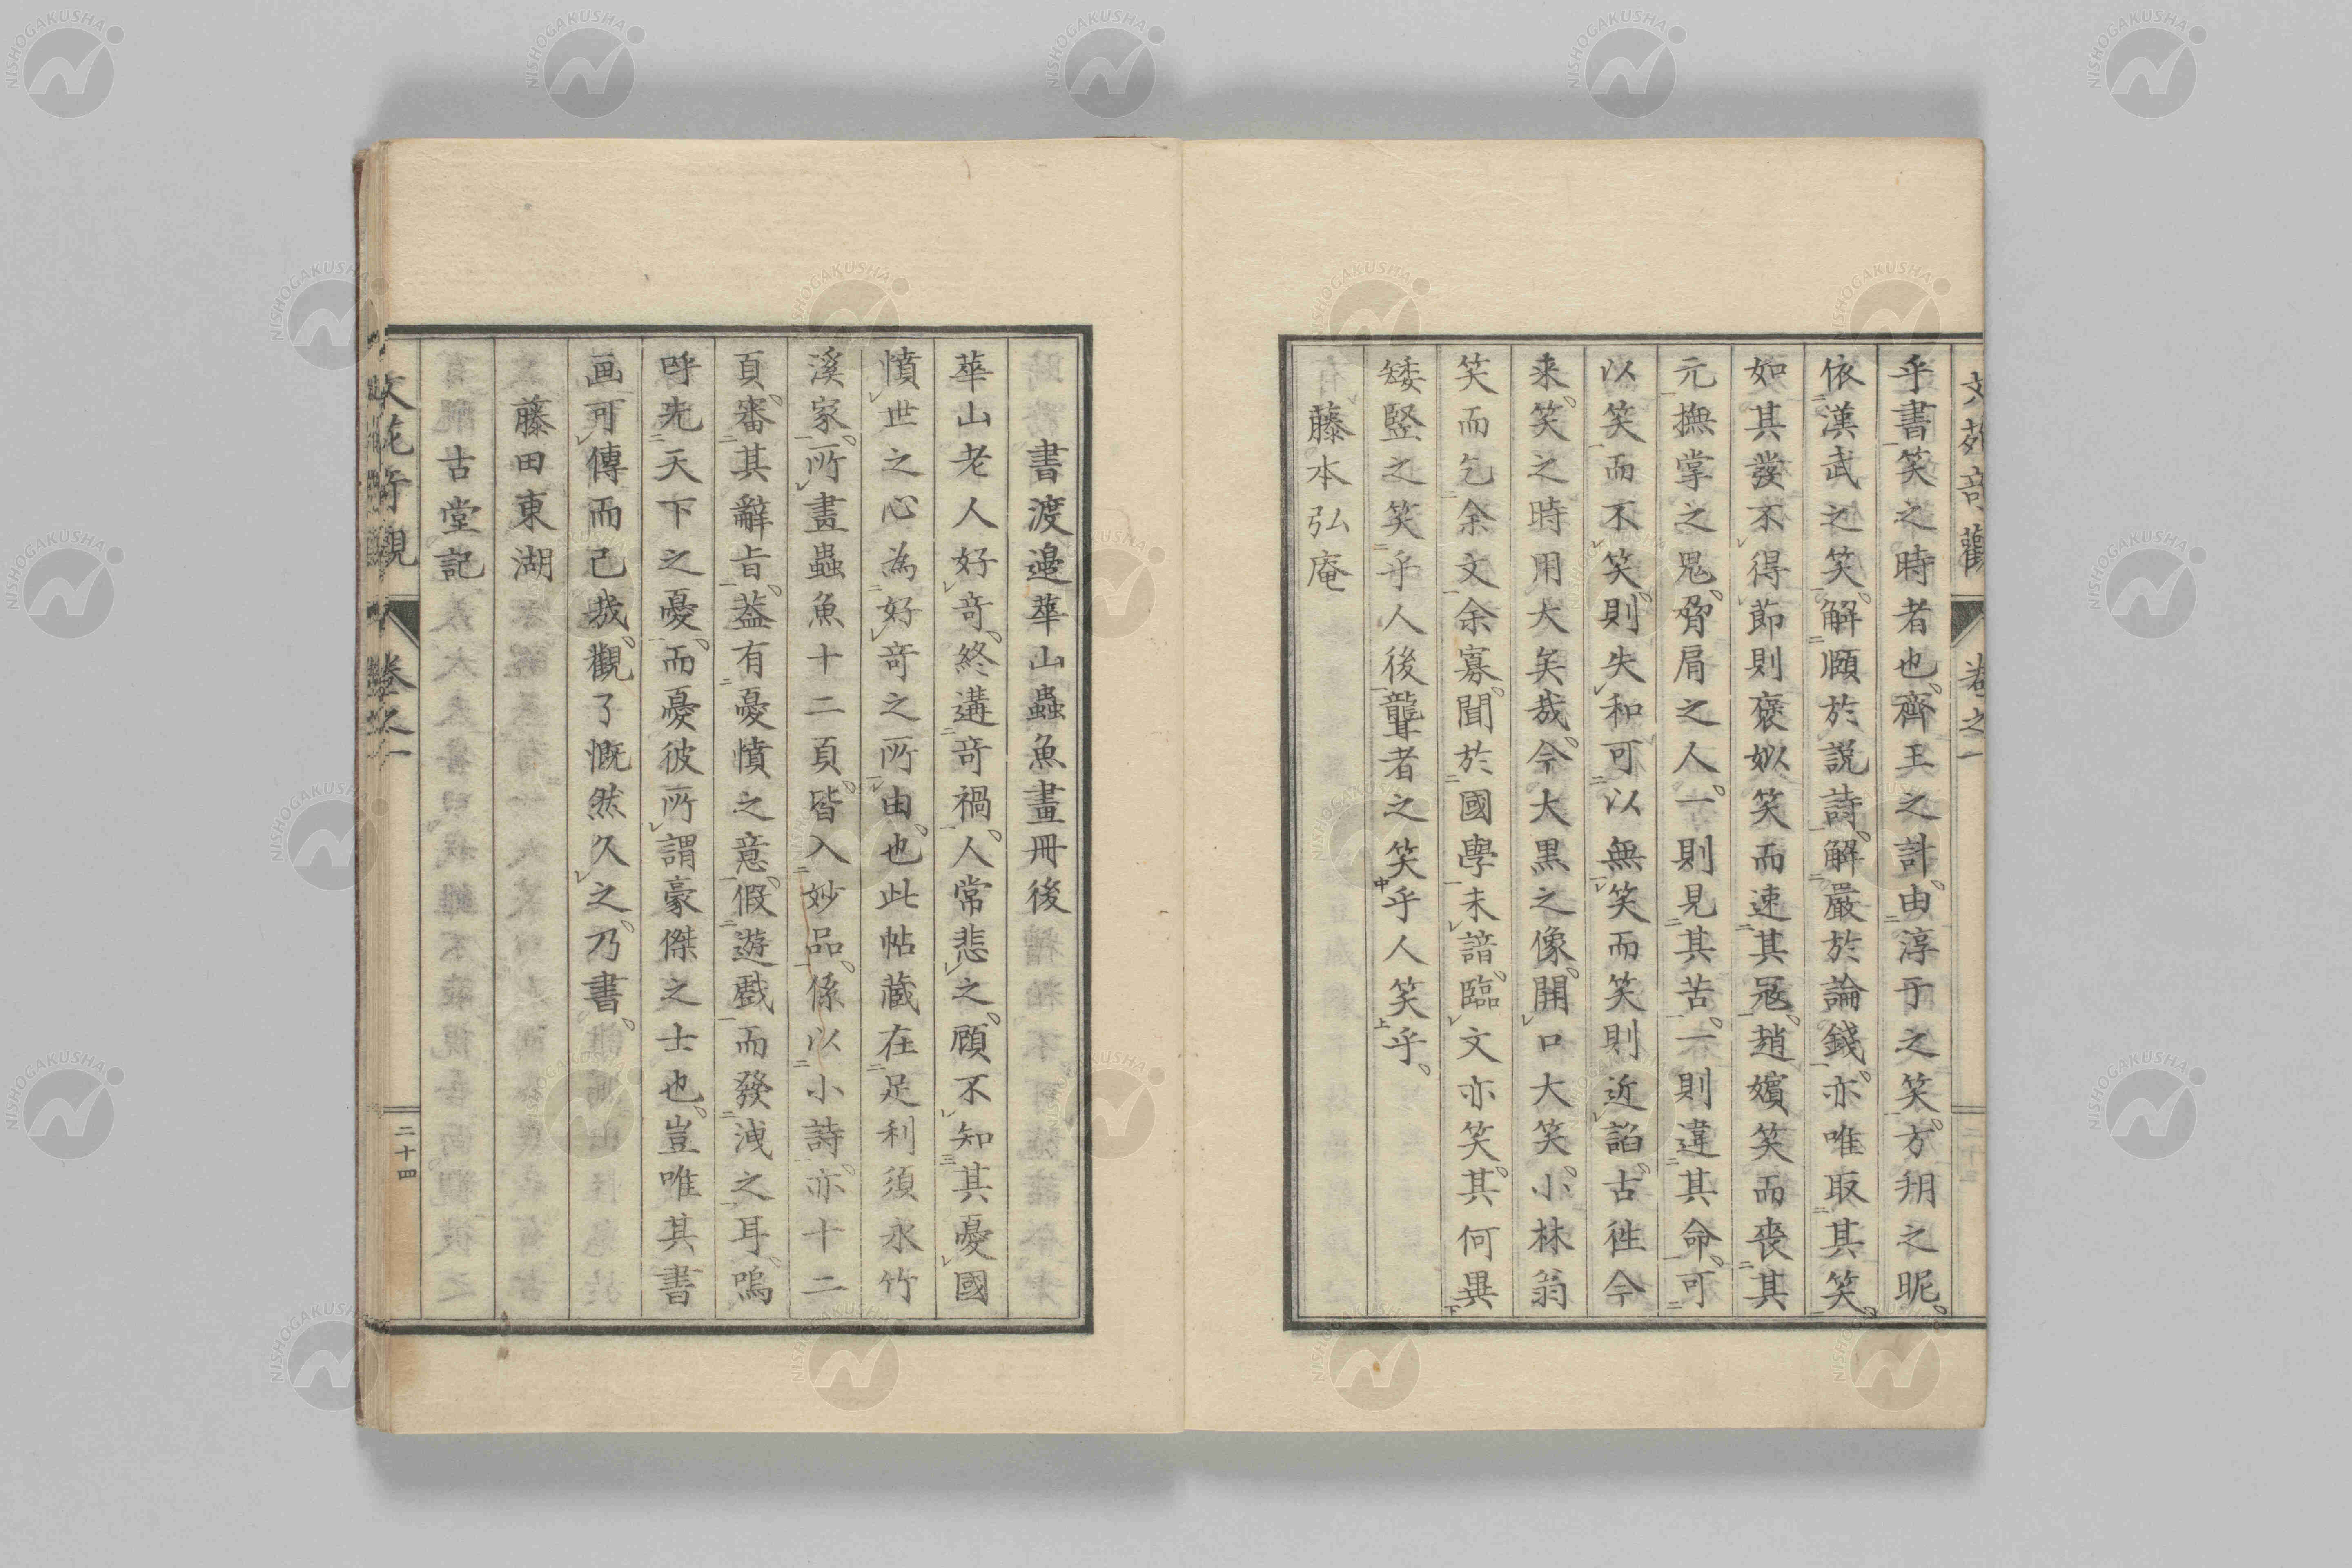 乎書笑之時者也齊王之計由淳于之笑方朔之昵
依漢武之笑解頤於説詩解嚴於論錢亦唯取其笑
如其發不得節則褒姒笑而速其寇趙嬪笑而喪其
元撫掌之鬼脅肩之人一則見其苦一則違其命可
以笑而不笑則失和可以無笑而笑則近諂古徃今
来笑之時用大矣哉今大黒之像開口大笑小林翁
笑而乞余文余寡聞於國學未諳臨文亦笑其何異
矮竪之笑乎人後聾者之笑乎人笑乎
藤本弘庵
書渡邉華山蟲魚畫冊後
華山老人好竒終遘竒禍人常悲之顧不知其憂國
憤世之心為好竒之所由也此帖藏在足利須永竹
溪家所畫蟲魚十二頁皆入妙品係以小詩亦十二
頁審其辭旨葢有憂憤之意假遊戲而發洩之耳嗚
呼先天下之憂而憂彼所謂豪傑之士也豈唯其書
画可傳而已哉觀了慨然久之乃書
藤田東湖
古堂記
二十四
NISHOGAKUSHA